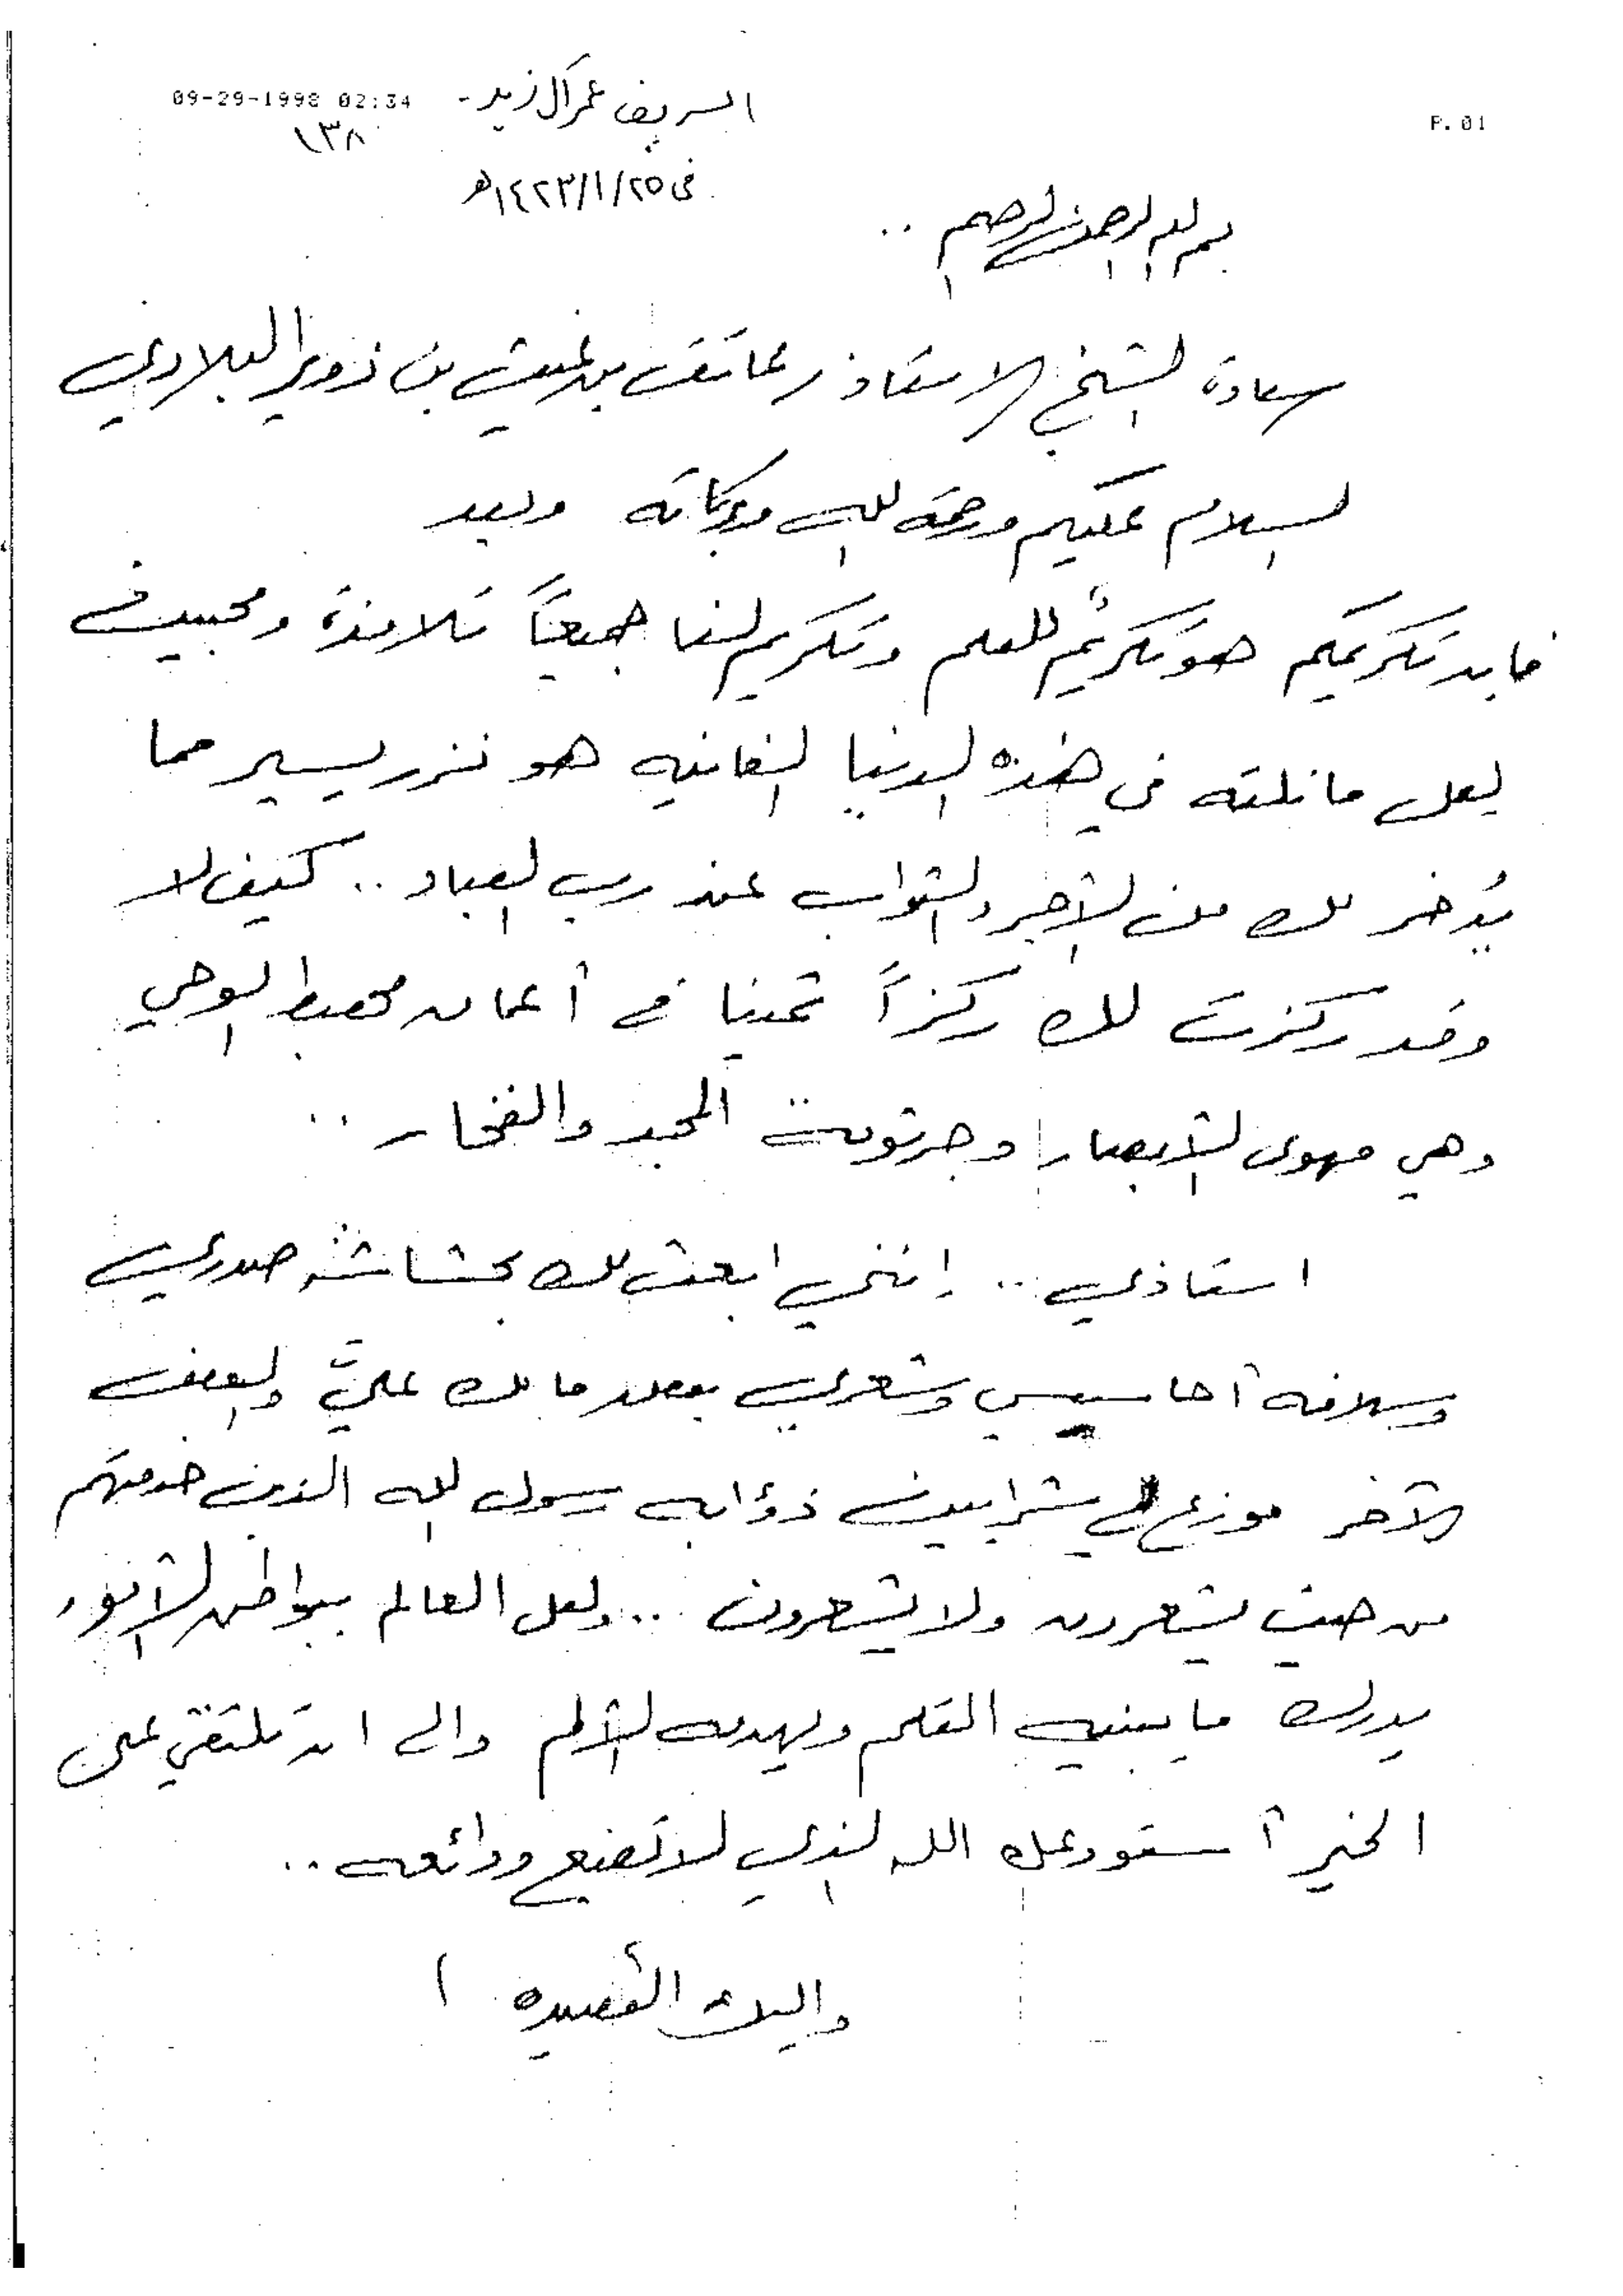 09-29-1998 02:34 الشريف عمر آل زيد - P.01
١٣٨
في ١٤٢٣/١/٢٥هـ
بسم الله الرحمن الرحيم ..
سعادة الشيخ الاستاذ / عاتق بن غيث بن زوير البلادي
السلام عليكم ورحمة الله وبركاته وبعد
فإن تكريمكم هو تكريم للعلم وتكريم لنا جميعاً تلامذة ومحبين
لعل ما نلته في هذه الدنيا الفانيه هو نزر يسير مما
يُدخر لك من الأجر والثواب عند رب العباد .. كيف لا
وقد ركزت لك ركزاً ثمينا في أعماق مهبط الوحي
وهي مهوى الأبصار وجرثومة المجد والفخار ..
استاذي .. إنني ابعث لك بحشاشة صدري
وسلافة أحاسيسي وشعري بعض ما لك عليَّ والبعض
الآخر موزع في شرايين ذؤابه رسول الله الذين خدمتهم
من حيث يشعرون ولا يشعرون .. ولعل العالم ببواطن الأمور
يدرك ما يبنيه القلم ويهدمه الألم والى ان نلتقي على
الخير أستودعك الله الذي لا تضيع ودائعه ..
واليك القصيده )